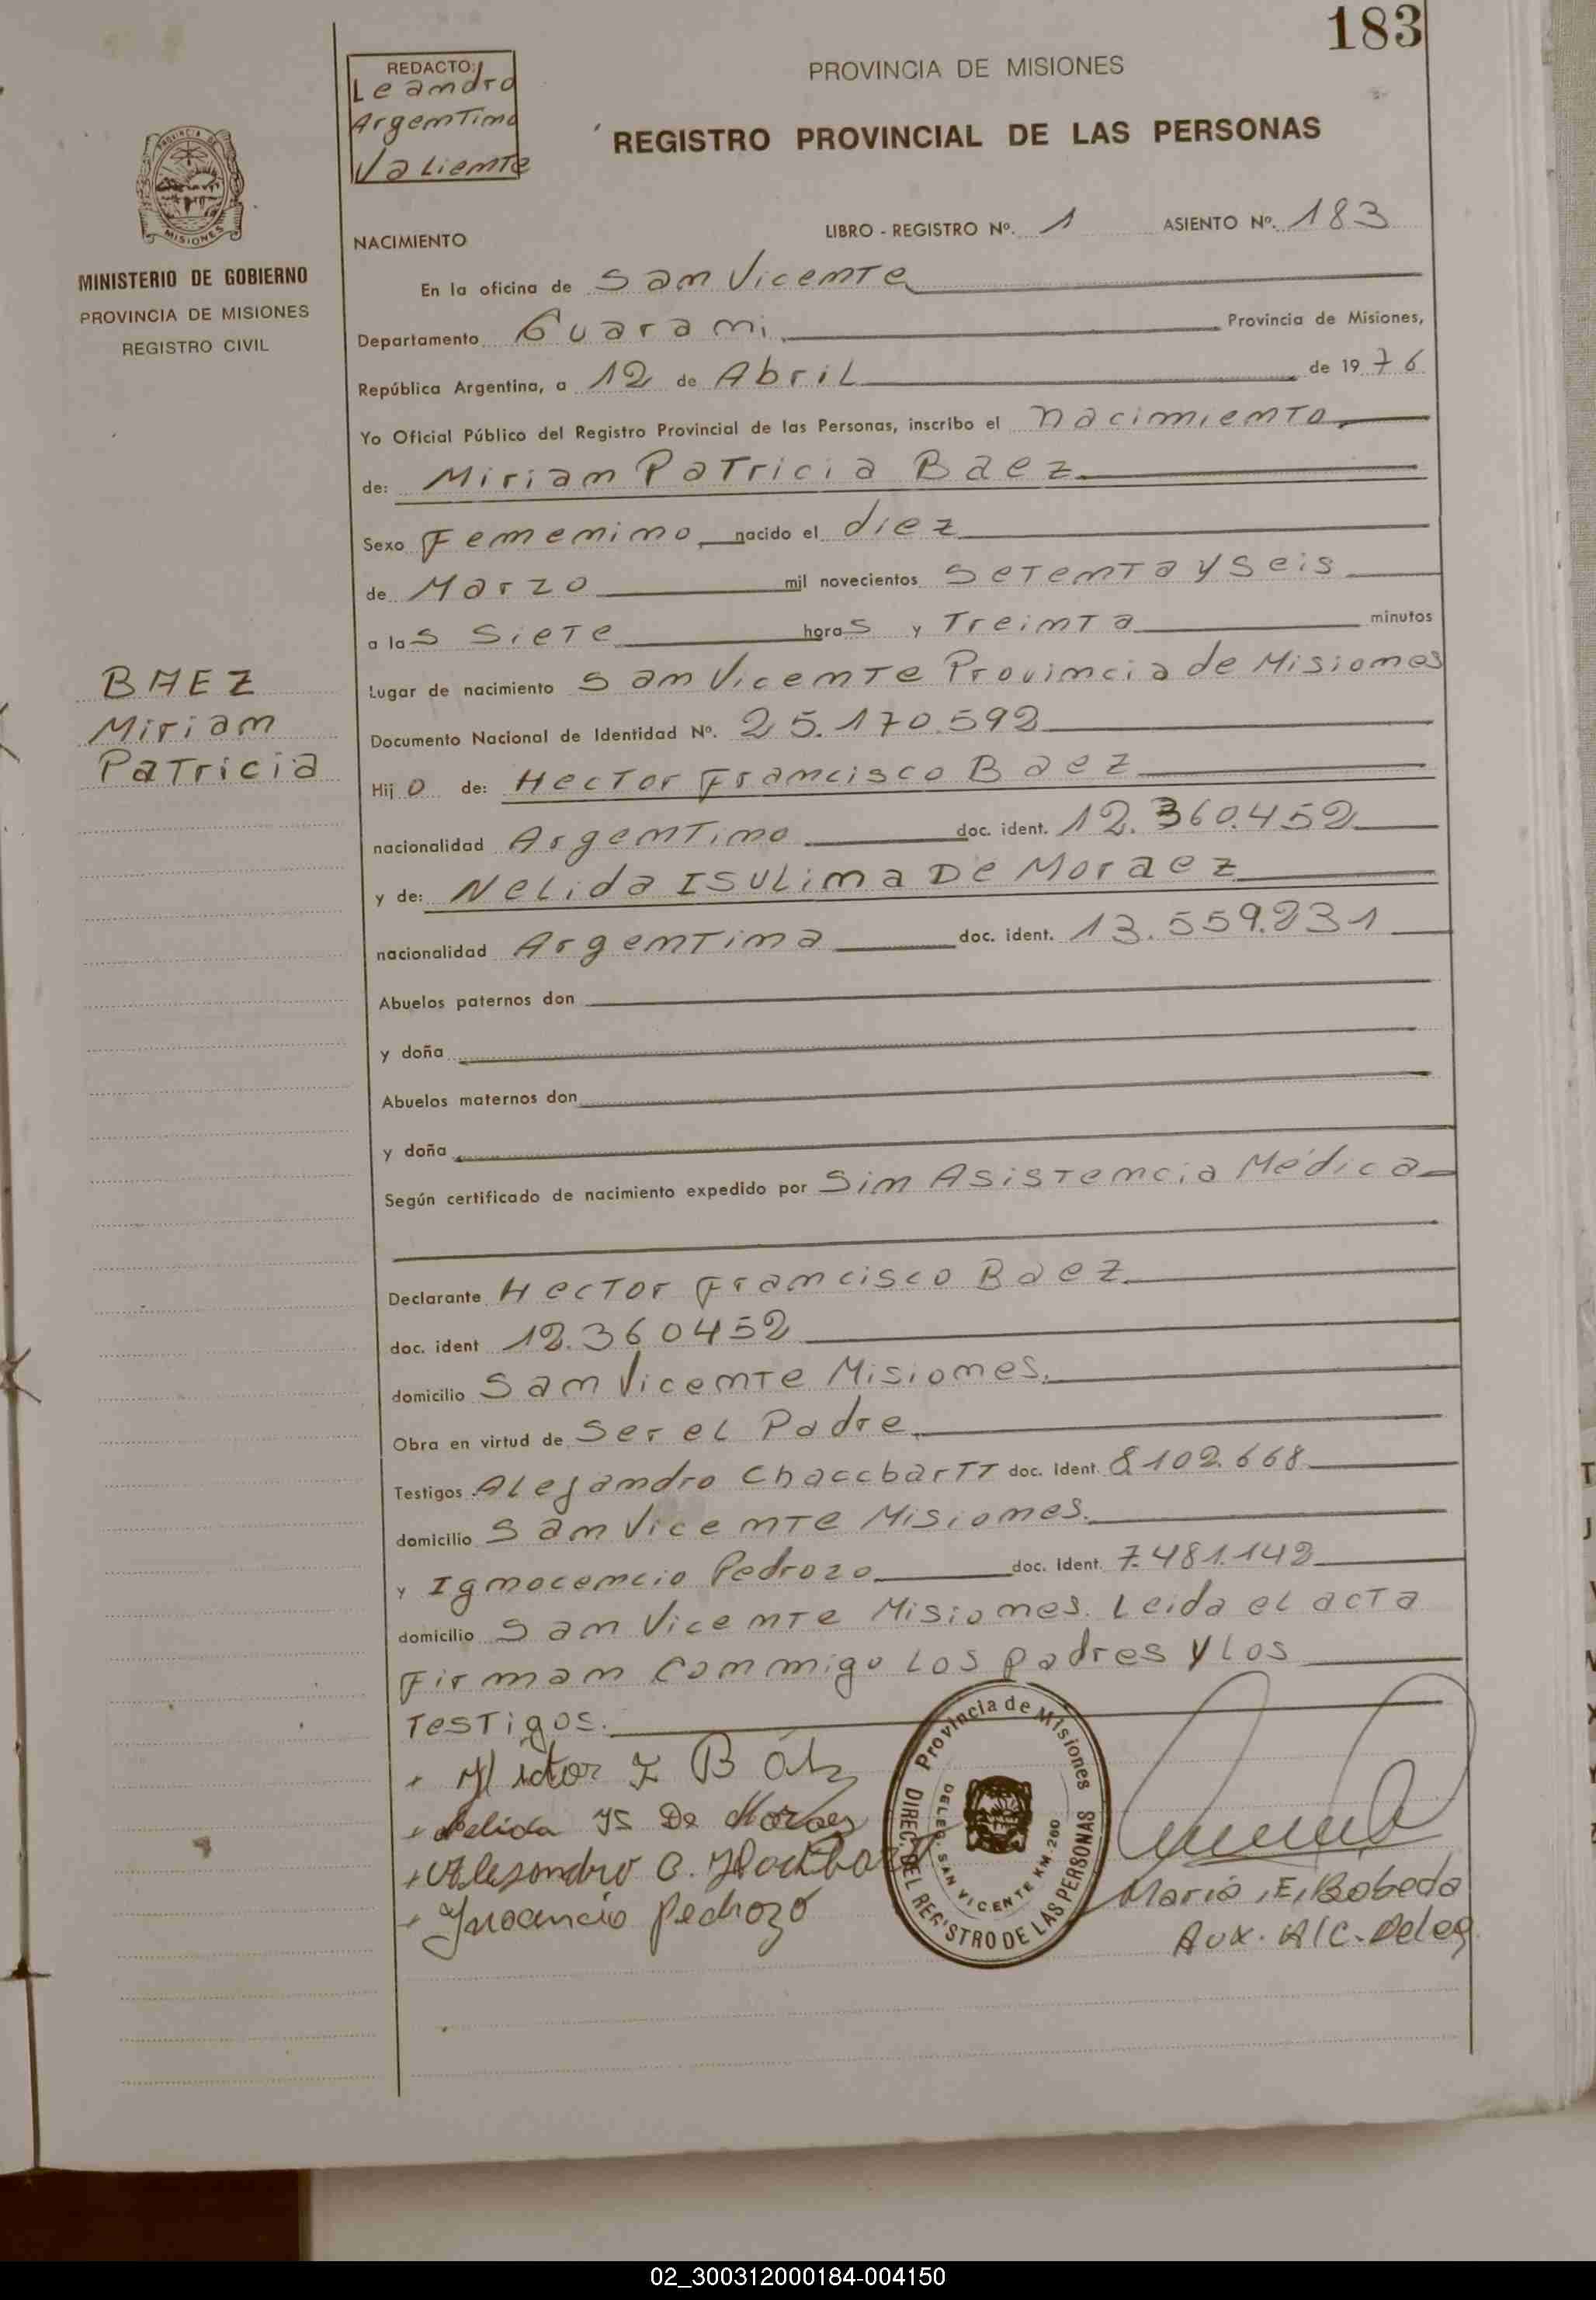 183
REDACTO:
Leandro
Argentino
Valiente
PROVINCIA DE MISIONES
REGISTRO PROVINCIAL DE LAS PERSONAS
PROVINCIA DE
MISIONES
MINISTERIO DE GOBIERNO
PROVINCIA DE MISIONES
REGISTRO CIVIL
NACIMIENTO LIBRO - REGISTRO Nº. 1 ASIENTO Nº. 183
En la oficina de San Vicente
Departamento Guarani Provincia de Misiones,
República Argentina, a 12 de Abril de 1976
Yo Oficial Público del Registro Provincial de las Personas, inscribo el nacimiento
de: Miriam Patricia Baez
Sexo Femenino nacido el diez
de Marzo mil novecientos setenta y seis
a las siete horas y treinta minutos
BAEZ
Miriam
Patricia
Lugar de nacimiento San Vicente Provincia de Misiones
Documento Nacional de Identidad Nº. 25.170.592
Hijo de: Hector Francisco Baez
nacionalidad Argentino doc. ident. 12.360.452
y de: Nelida Isulina De Moraez
nacionalidad Argentina doc. ident. 13.559.231
Abuelos paternos don
y doña
Abuelos maternos don
y doña
Según certificado de nacimiento expedido por Sin Asistencia Médica
Declarante Hector Francisco Baez
doc. ident 12.360452
domicilio San Vicente Misiones.
Obra en virtud de Ser el Padre
Testigos Alejandro Chaccbartt doc. Ident. 8.102.668
domicilio San Vicente Misiones.
y Ignocencio Pedrozo doc. Ident. 7.481.142
domicilio San Vicente Misiones. Leida el acta
Firman conmigo los padres y los
Testigos.
Hector F Báez
Nelida IS De Moraez
Alejandro C.
Inocencio Pedrozo
Provincia de Misiones
DIREC. DEL REGISTRO DE LAS PERSONAS
DELEG. SAN VICENTE KM. 260
Mario E. Bobeda
Aux. A/C. Deleg.
02_300312000184-004150